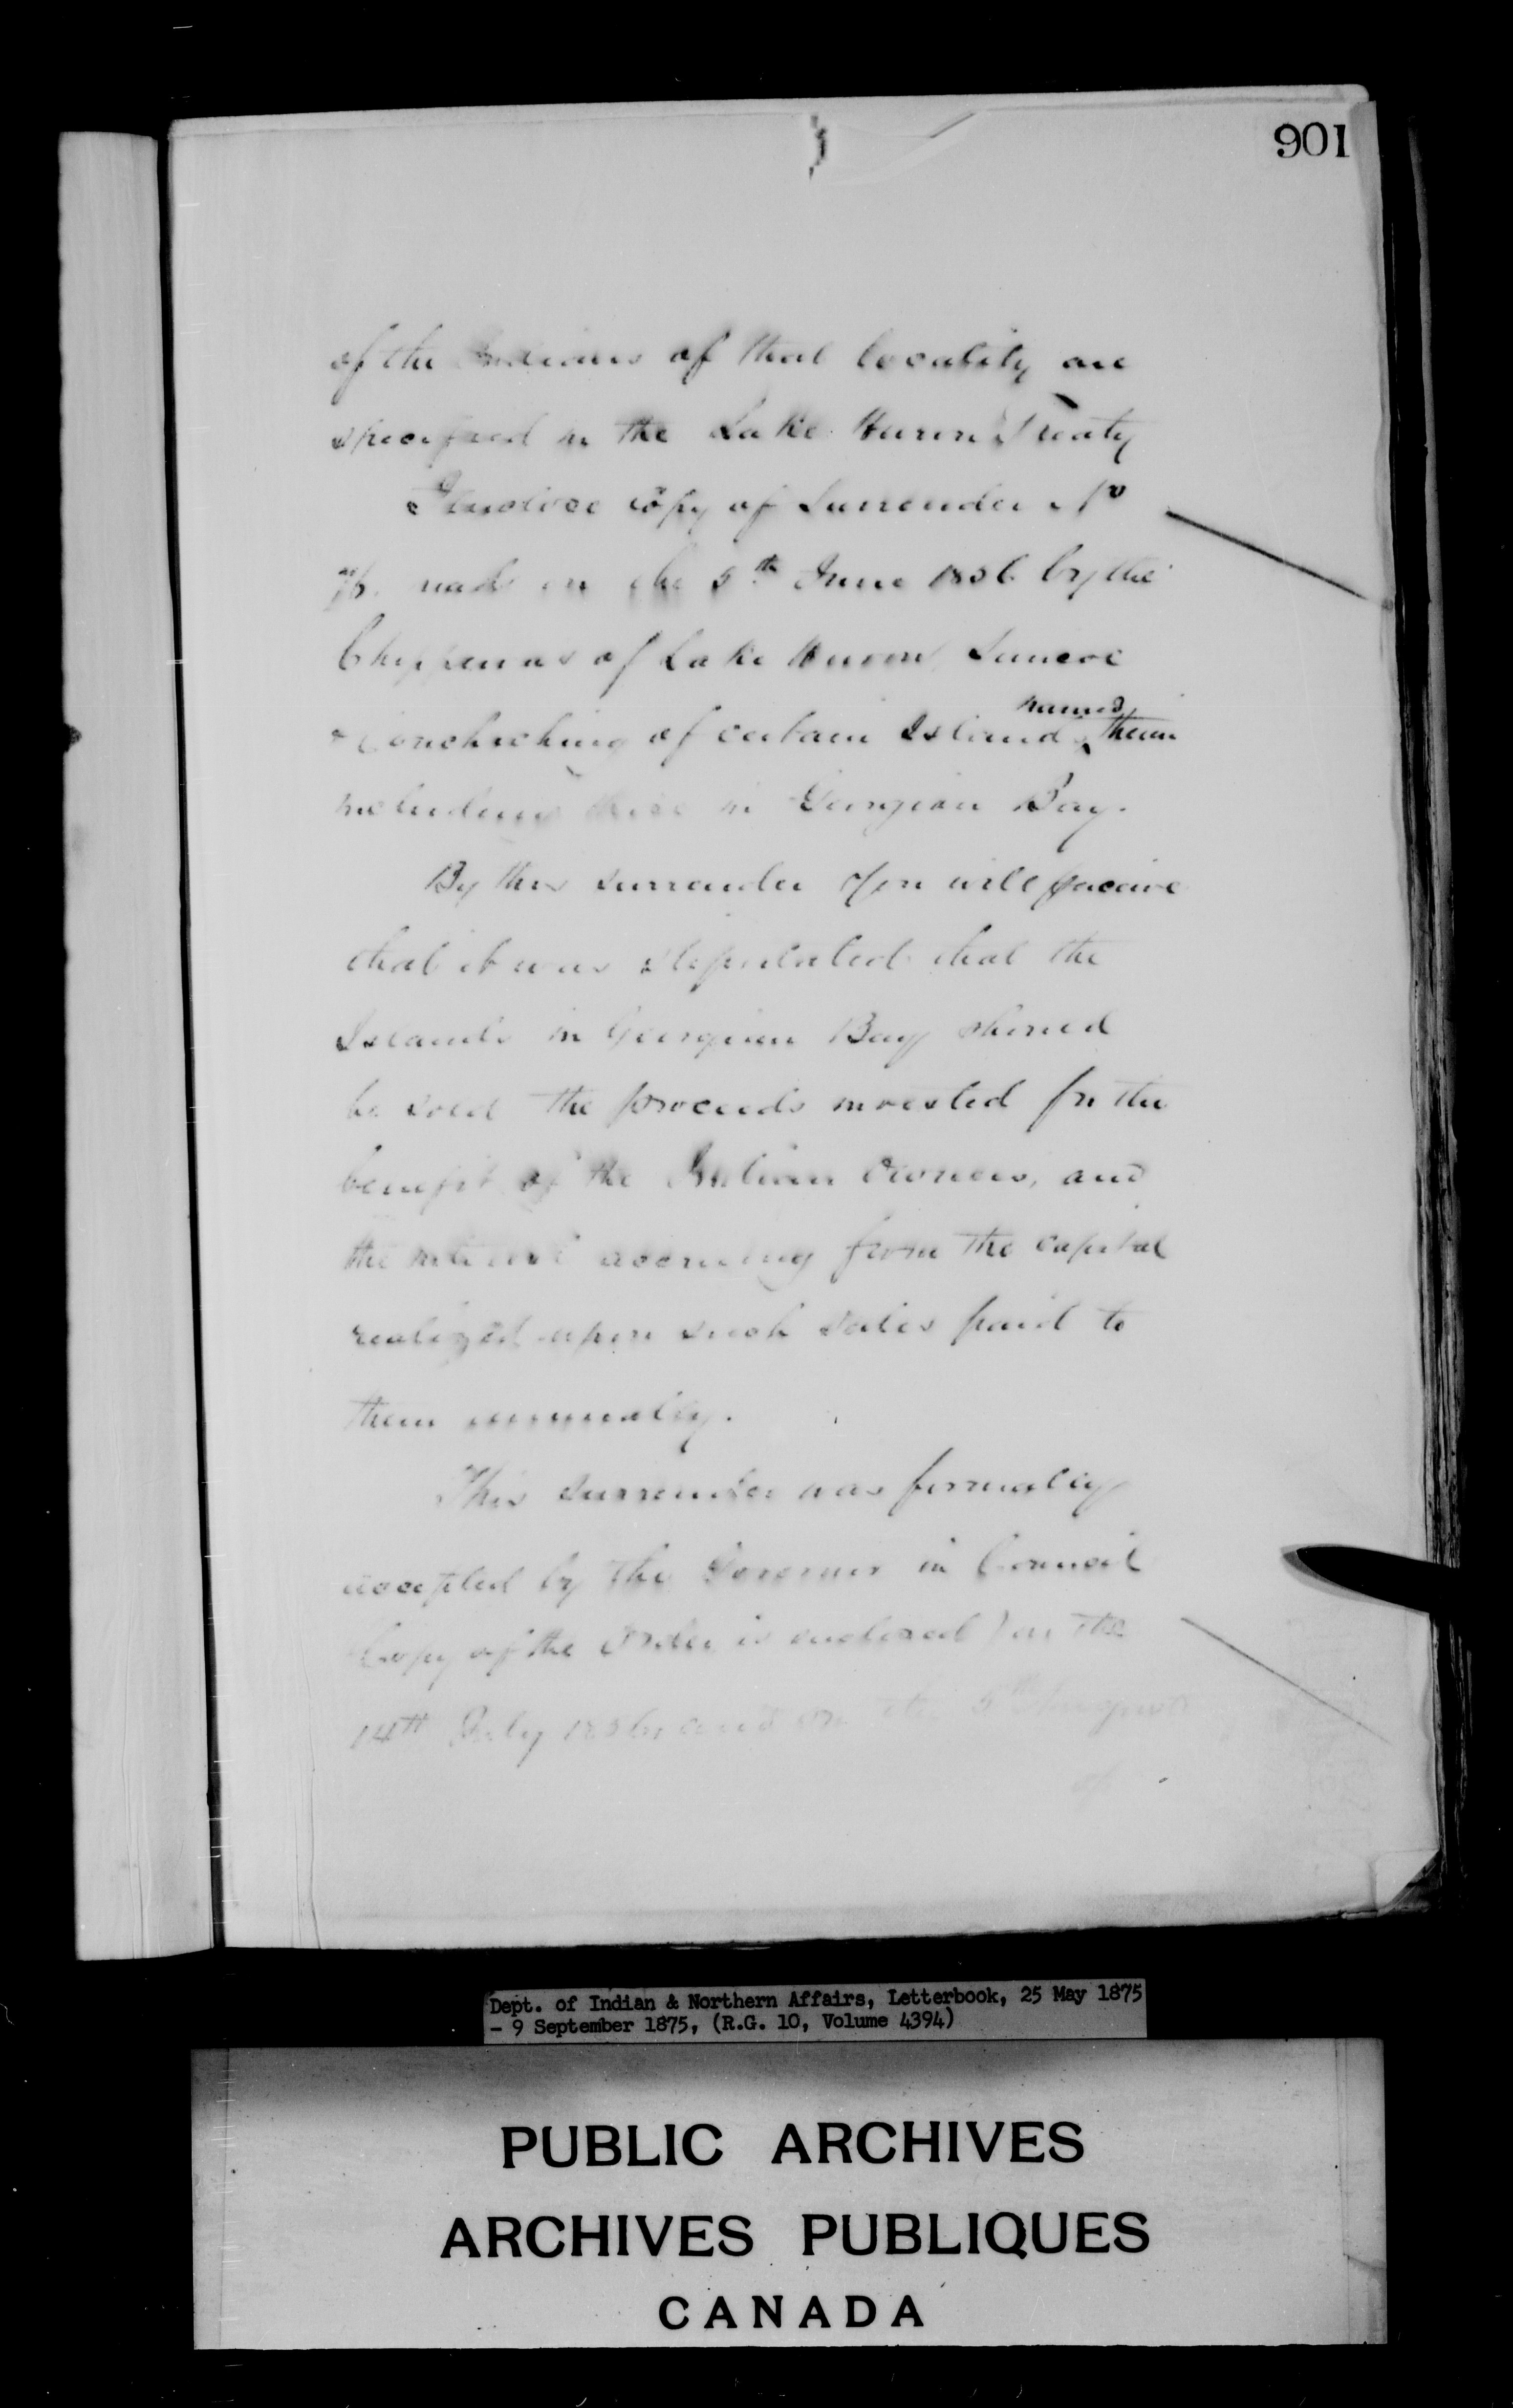 901
of the Indians of that locality are
specified in the Lake Huron Treaty
I enclose copy of Surrender No
76. made on the 5th June 1856 by the
Chippewas of Lake Huron, Simcoe
& Couchiching of certain Islands named therein
including those in Georgian Bay.
By this surrender you will perceive
that it was stipulated that the
Islands in Georgian Bay should
be sold the proceeds invested for the
benefit of the Indian Owners, and
the interest accruing from the capital
realized upon such sales paid to
them annually.
This surrender was formally
accepted by the Governor in Council
Copy of the Order is enclosed) on the
14th July 1856, and on the 5th August
of
Dept. of Indian & Northern Affairs, Letterbook, 25 May 1875
- 9 September 1875, (R.G. 10, Volume 4394)
PUBLIC ARCHIVES
ARCHIVES PUBLIQUES
CANADA